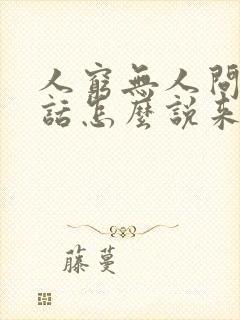 人窮無人問
話怎麼說來
藤蔓